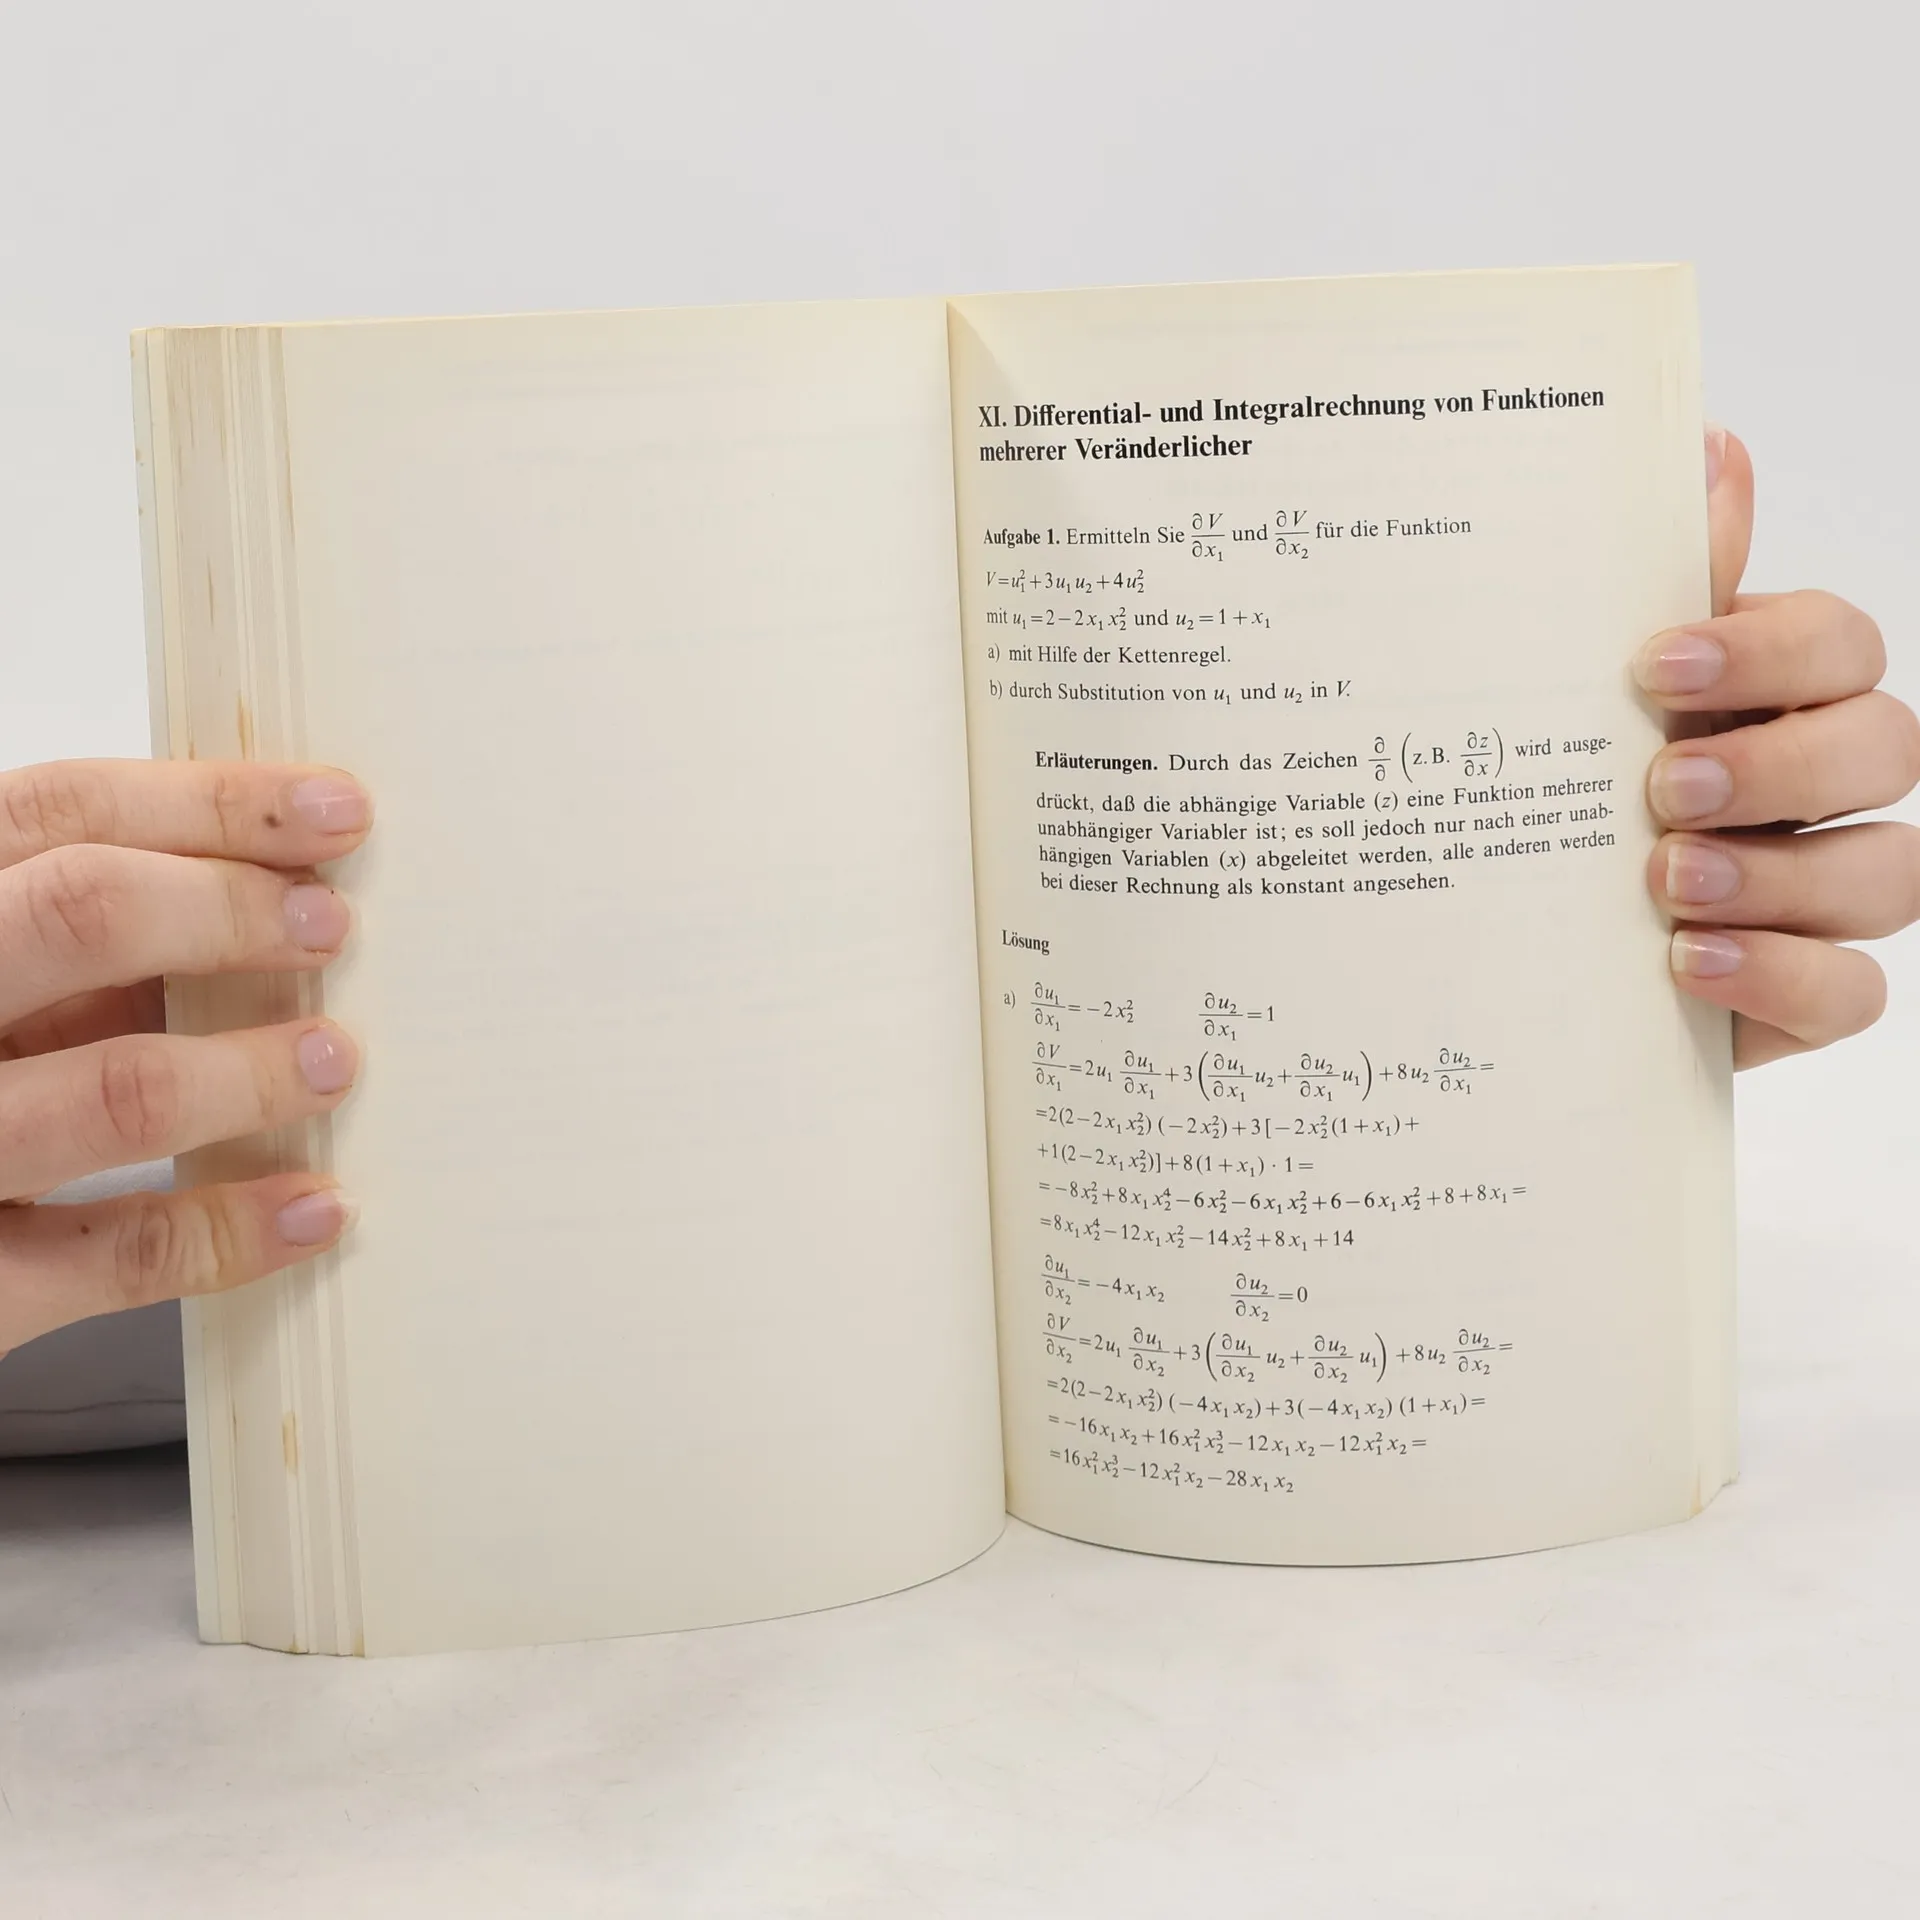 XI. Differential- und Integralrechnung von Funktionen
mehrerer Veränderlicher
Aufgabe 1. Ermitteln Sie ∂V/∂x₁ und ∂V/∂x₂ für die Funktion
V=u₁²+3u₁u₂+4u₂²
mit u₁=2−2x₁x₂² und u₂=1+x₁
a) mit Hilfe der Kettenregel.
b) durch Substitution von u₁ und u₂ in V.
Erläuterungen. Durch das Zeichen ∂/∂ (z.B. ∂z/∂x) wird ausge-
drückt, daß die abhängige Variable (z) eine Funktion mehrerer
unabhängiger Variabler ist; es soll jedoch nur nach einer unab-
hängigen Variablen (x) abgeleitet werden, alle anderen werden
bei dieser Rechnung als konstant angesehen.
Lösung
a) ∂u₁/∂x₁=−2x₂² ∂u₂/∂x₁=1
∂V/∂x₁=2u₁ ∂u₁/∂x₁+3(∂u₁/∂x₁ u₂+∂u₂/∂x₁ u₁)+8u₂ ∂u₂/∂x₁=
=2(2−2x₁x₂²)(−2x₂²)+3[−2x₂²(1+x₁)+
+1(2−2x₁x₂²)]+8(1+x₁)·1=
=−8x₂²+8x₁x₂⁴−6x₂²−6x₁x₂²+6−6x₁x₂²+8+8x₁=
=8x₁x₂⁴−12x₁x₂²−14x₂²+8x₁+14
∂u₁/∂x₂=−4x₁x₂ ∂u₂/∂x₂=0
∂V/∂x₂=2u₁ ∂u₁/∂x₂+3(∂u₁/∂x₂ u₂+∂u₂/∂x₂ u₁)+8u₂ ∂u₂/∂x₂=
=2(2−2x₁x₂²)(−4x₁x₂)+3(−4x₁x₂)(1+x₁)=
=−16x₁x₂+16x₁²x₂³−12x₁x₂−12x₁²x₂=
=16x₁²x₂³−12x₁²x₂−28x₁x₂